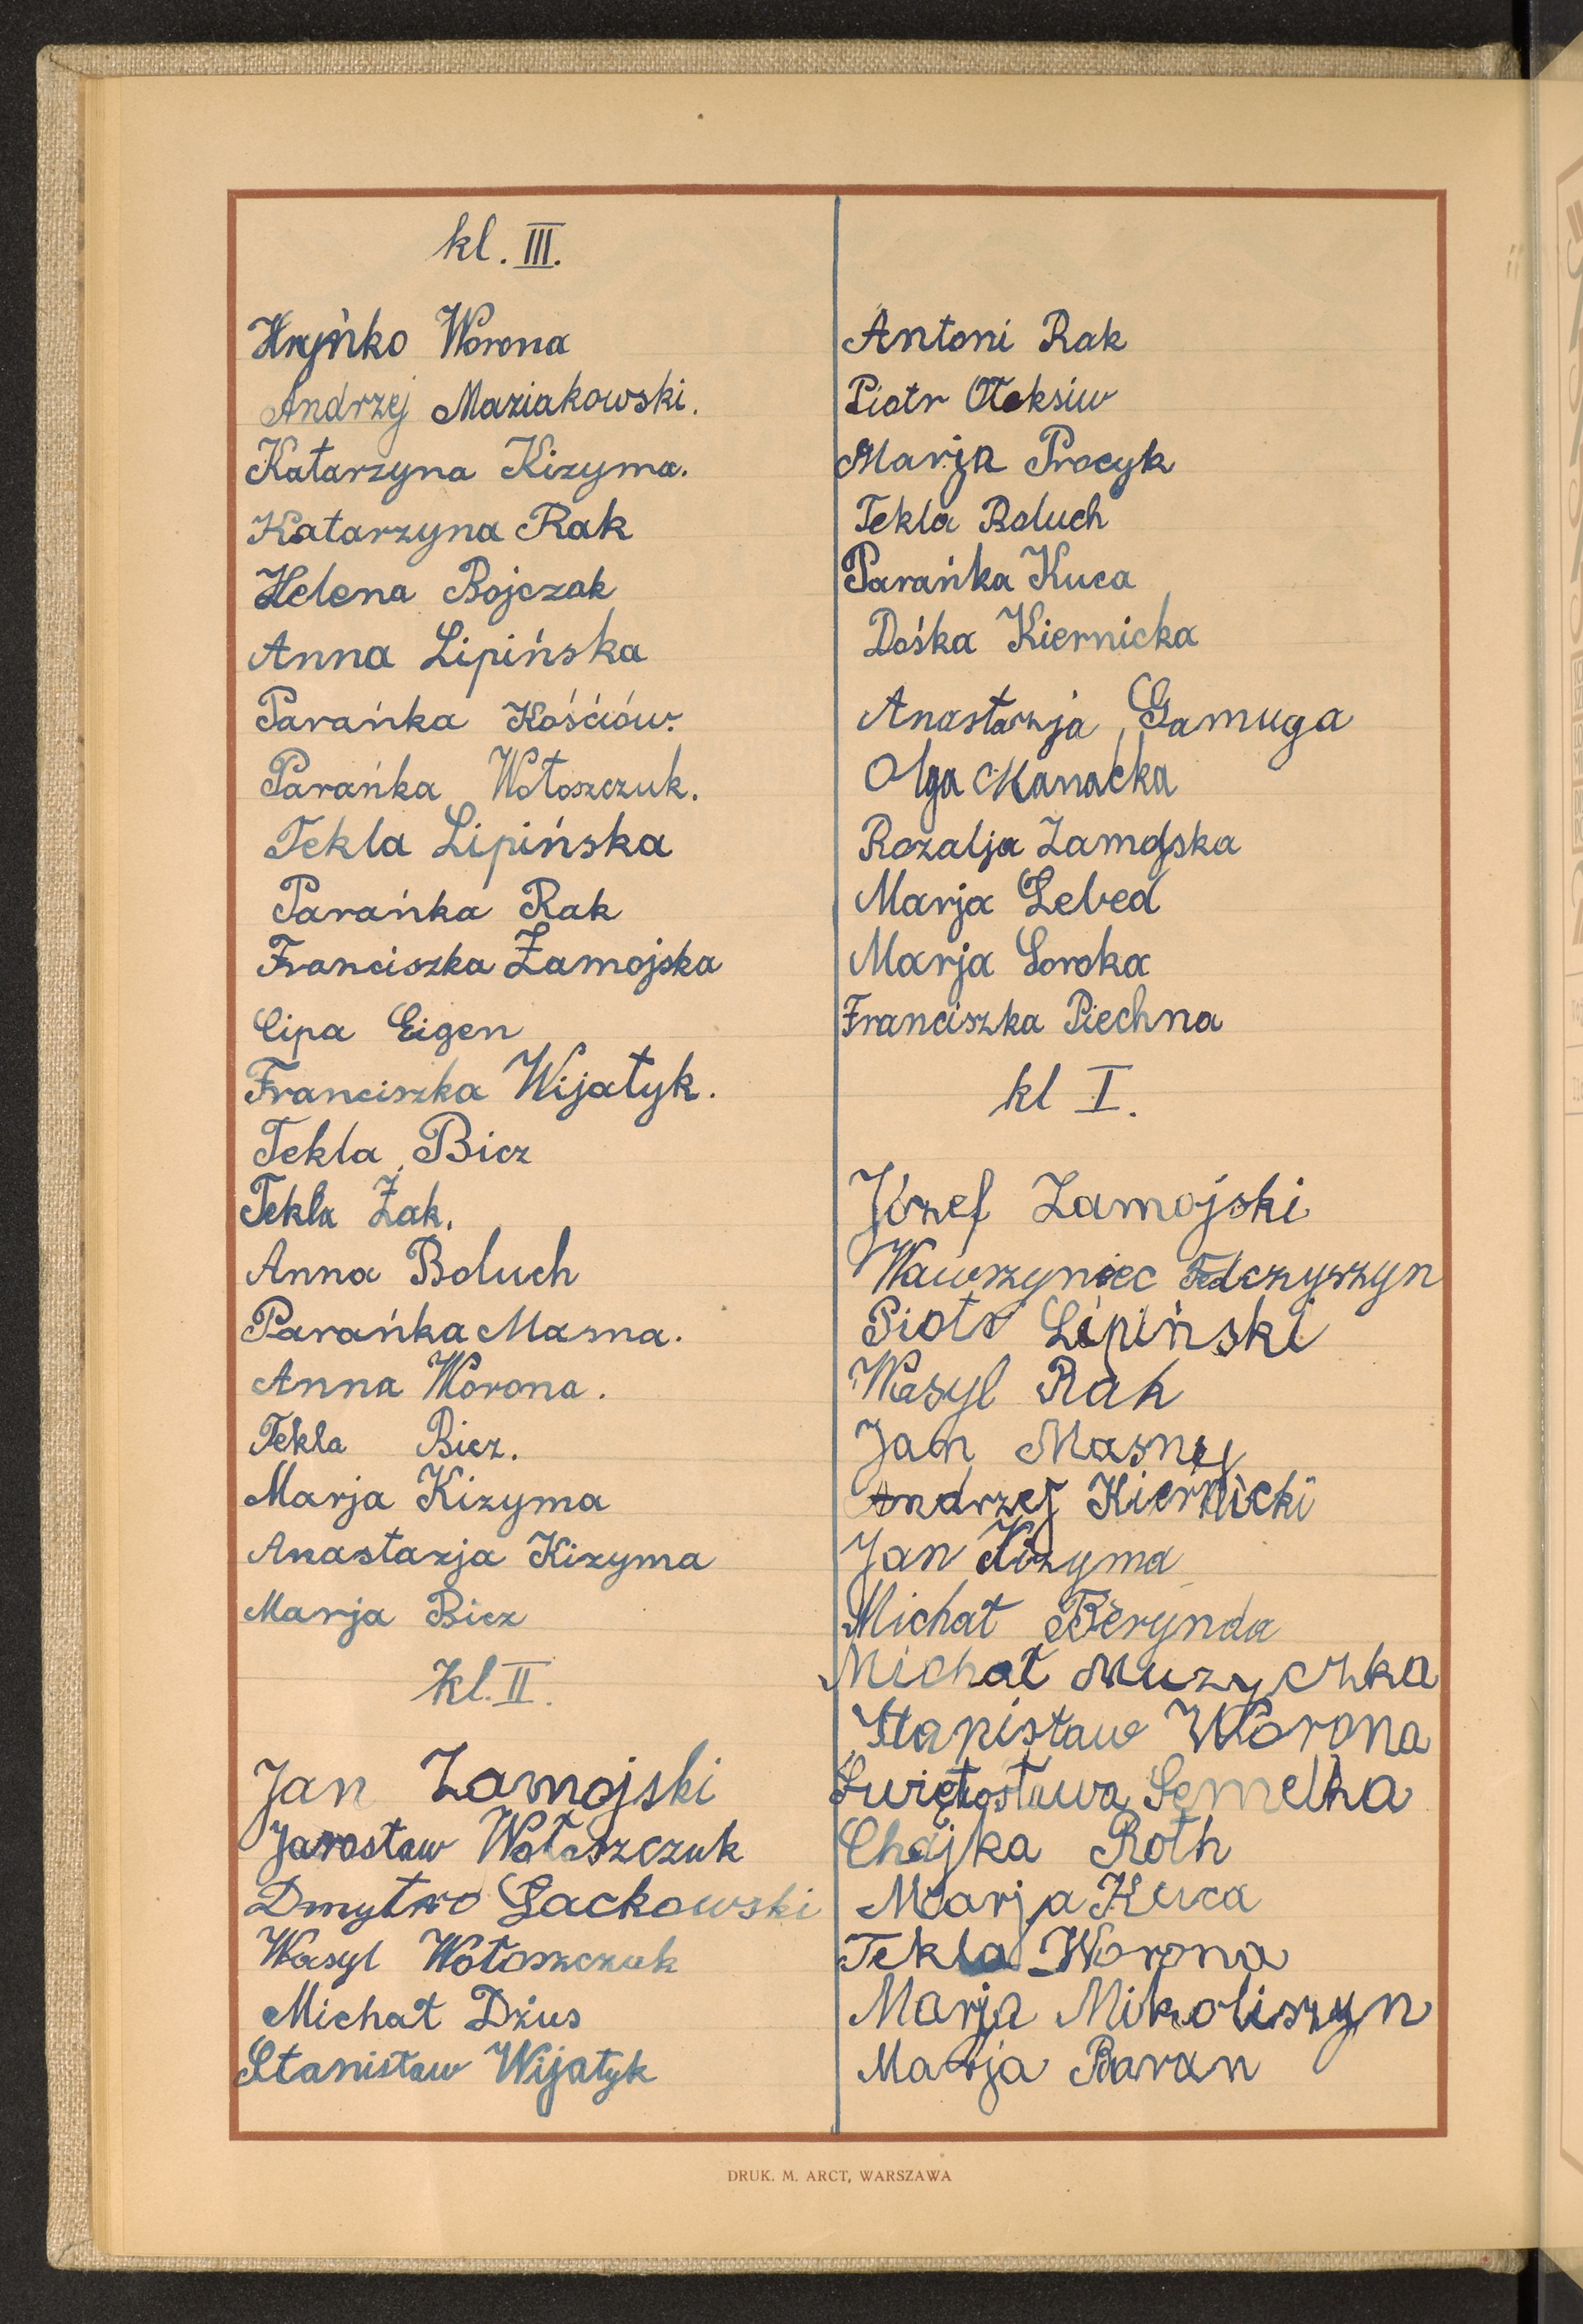 kl. III.
Hryńko Worona
Andrzej Maziakowski.
Katarzyna Kizyma.
Katarzyna Rak
Helena Bojczak
Anna Lipińska
Parańka Kośćiów.
Parańka Wołoszczuk.
Tekla Lipińska
Parańka Rak
Franciszka Zamojska
Cipa Eigen
Franciszka Wijatyk.
Tekla Bicz
Tekla Żak.
Anna Boluch
Parańka Masna.
Anna Worona.
Tekla Bicz.
Marja Kizyma
Anastazja Kizyma
Marja Bicz
Kl. II.
Jan Zamojski
Jarosław Wołoszczuk
Dmytro Lackowski
Wasyl Wołoszczuk
Michał Dżus
Stanisław Wijatyk
Antoni Rak
Piotr Ołeksiw
Marja Procyk
Tekla Boluch
Parańka Kuca
Dośka Kiernicka
Anastazja Gamuga
Olga Manacka
Rozalja Zamojska
Marja Lebed
Marja Soroka
Franciszka Piechna
kl I.
Józef Zamojski
Wawrzyniec Fedczyszyn
Piotr Lipiński
Wasyl Rak
Jan Masny
Andrzej Kiernicki
Jan Kizyma
Michał Berynda
Michał Muzyczka
Stanisław Worona
Świętosława Semelka
Chajka Roth
Marja Kuca
Tekla Worona
Marja Mikoliszyn
Marja Baran
DRUK. M. ARCT, WARSZAWA